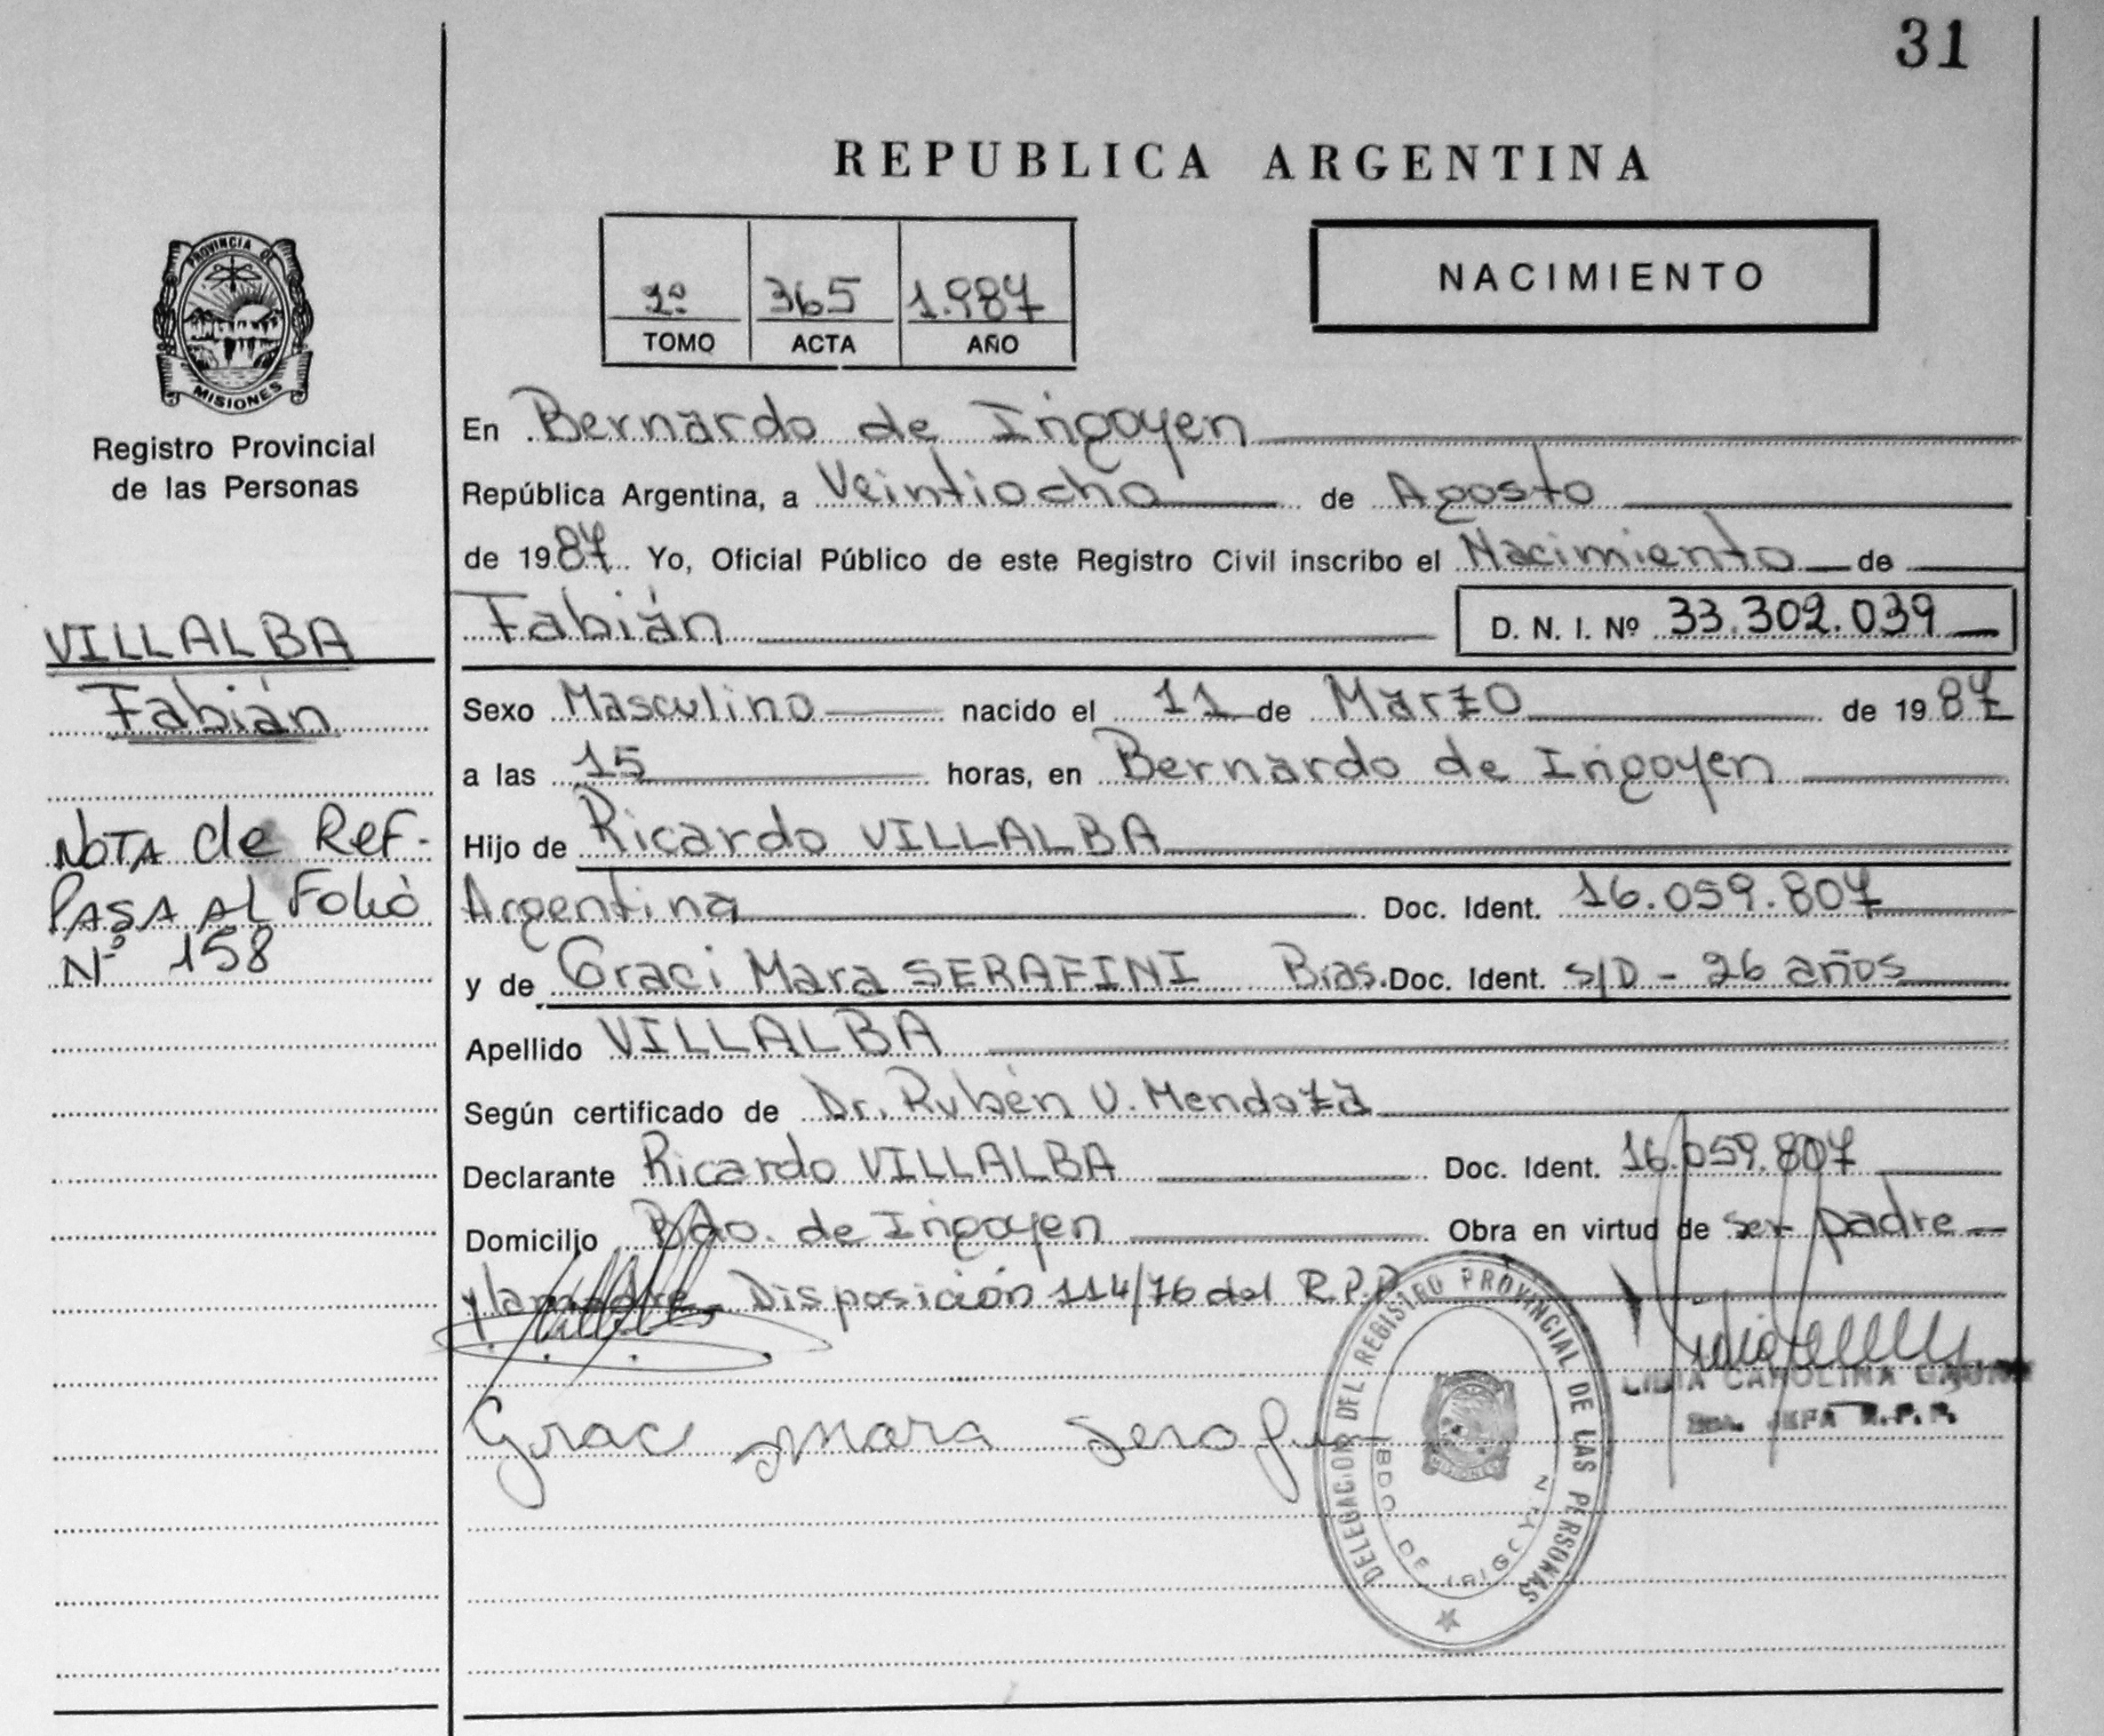 31
REPUBLICA ARGENTINA
PROVINCIA DE
MISIONES
Registro Provincial
de las Personas
2º 365 1.987
TOMO ACTA AÑO
NACIMIENTO
En Bernardo de Irigoyen
República Argentina, a Veintiocho de Agosto
de 1987 Yo, Oficial Público de este Registro Civil inscribo el Nacimiento de
Fabián D. N. I. Nº 33.302.039
VILLALBA
Fabián
NOTA de Ref.
PASA AL Folio
Nº 158
Sexo Masculino nacido el 11 de Marzo de 1987
a las 15 horas, en Bernardo de Irigoyen
Hijo de Ricardo VILLALBA
Argentina Doc. Ident. 16.059.807
y de Graci Mara SERAFINI Bras. Doc. Ident. S/D - 26 años
Apellido VILLALBA
Según certificado de Dr. Rubén V. Mendoza
Declarante Ricardo VILLALBA Doc. Ident. 16.059.807
Domicilio Bdo. de Irigoyen Obra en virtud de ser padre
y la madre - Disposición 114/76 del R.P.P.
Grac Mara
DELEGACION DEL REGISTRO PROVINCIAL DE LAS PERSONAS
BDO. DE IRIGOYEN
MISIONES
LIDIA CAROLINA
JEFA R.P.P.